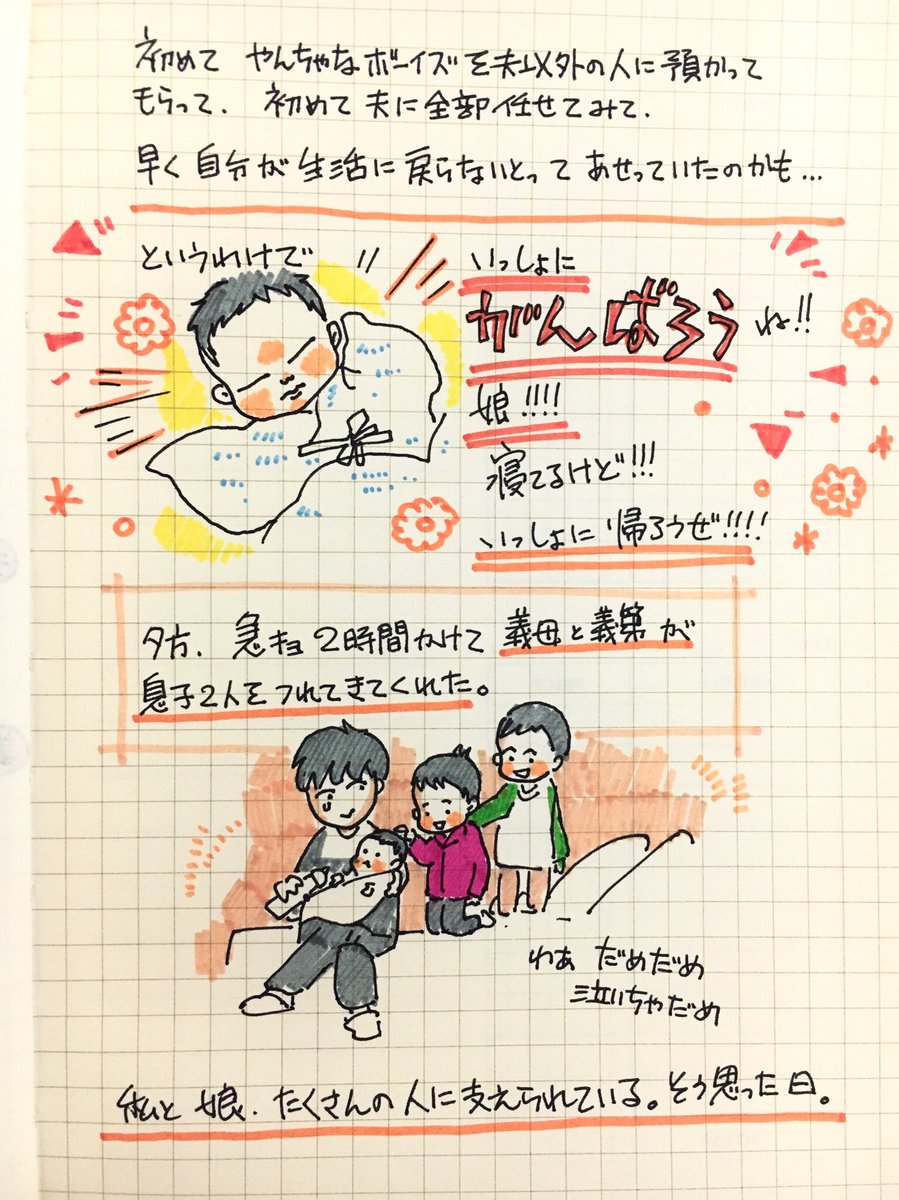 初めて やんちゃなボーイズを夫以外の人に預かって
もらって、初めて夫に全部任せてみて、
早く自分が生活に戻らないとって あせっていたのかも…
というわけで
いっしょに
がんばろうね!!
娘!!!!
寝てるけど!!!
いっしょに帰ろうぜ!!!!
夕方、急キョ2時間かけて義母と義弟が
息子2人をつれてきてくれた。
わぁ だめだめ
泣いちゃだめ
私と娘、たくさんの人に支えられている。そう思った日。